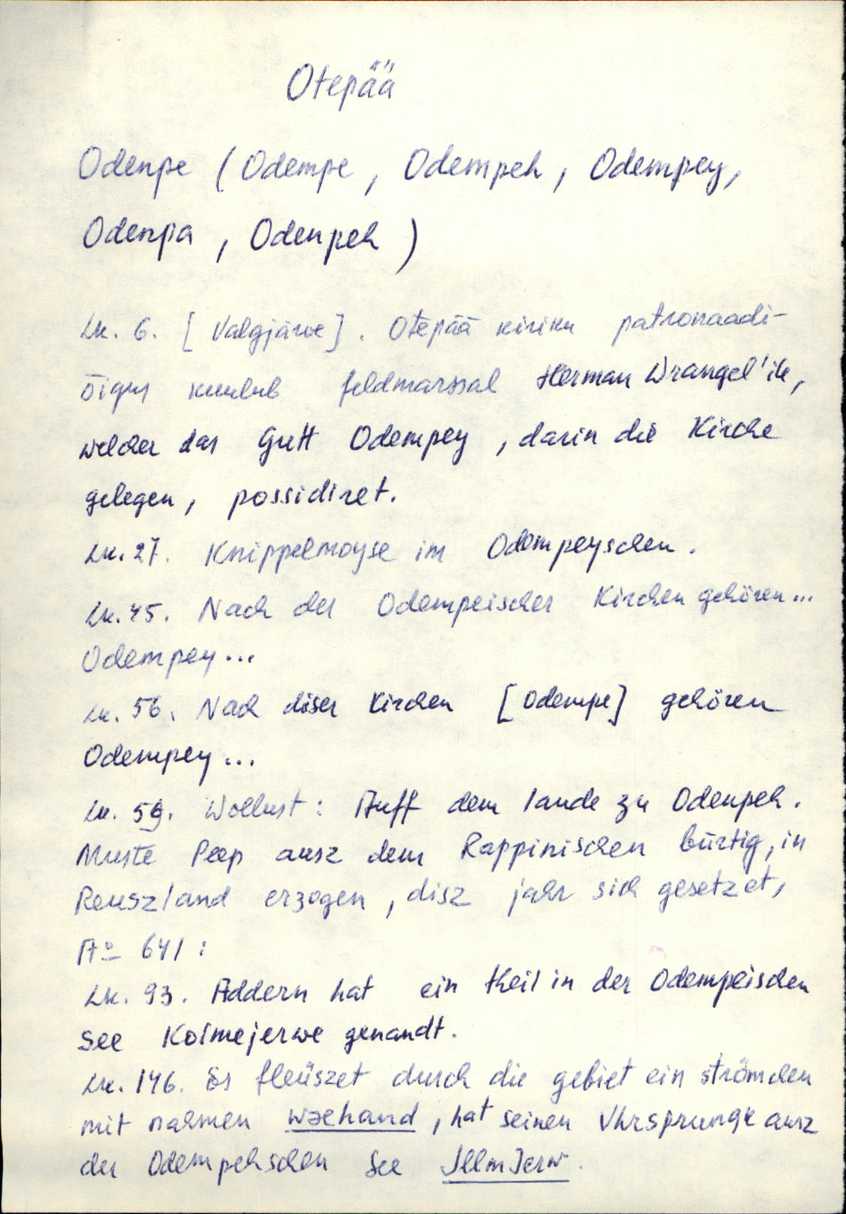 Otepää
Odenpe (Odempe, Odempeh, Odempey,
Odenpa, Odenpeh)
Lk. 6. [Valgjärwe]. Otepää kiriku patronaadi-
õigus kuulub feldmarssal Herman Wrangel'ile,
welcher das Gutt Odempey, darin die Kirche
gelegen, possidiret.
Lk. 27. Knippelmoyse im Odempeyschen.
Lk. 45. Nach der Odempeischer Kirchen gehören...
Odempey...
Lk. 56. Nach diser Kirchen [Odempe] gehören
Odempey...
Lk. 59. Wollust: Auff dem lande zu Odenpeh.
Muste Peep ausz dem Rappinischen bürtig, in
Reuszland erzogen, disz jahr sich gesetzet,
Aº 641:
Lk. 93. Addern hat ein theil in der Odempeischen
See Kolmejerwe genandt.
Lk. 146. Es fleüszet durch die gebiet ein strömchen
mit nahmen Waehand, hat seinen Vhrsprungk ausz
der Odempehschen See IllmJerw.